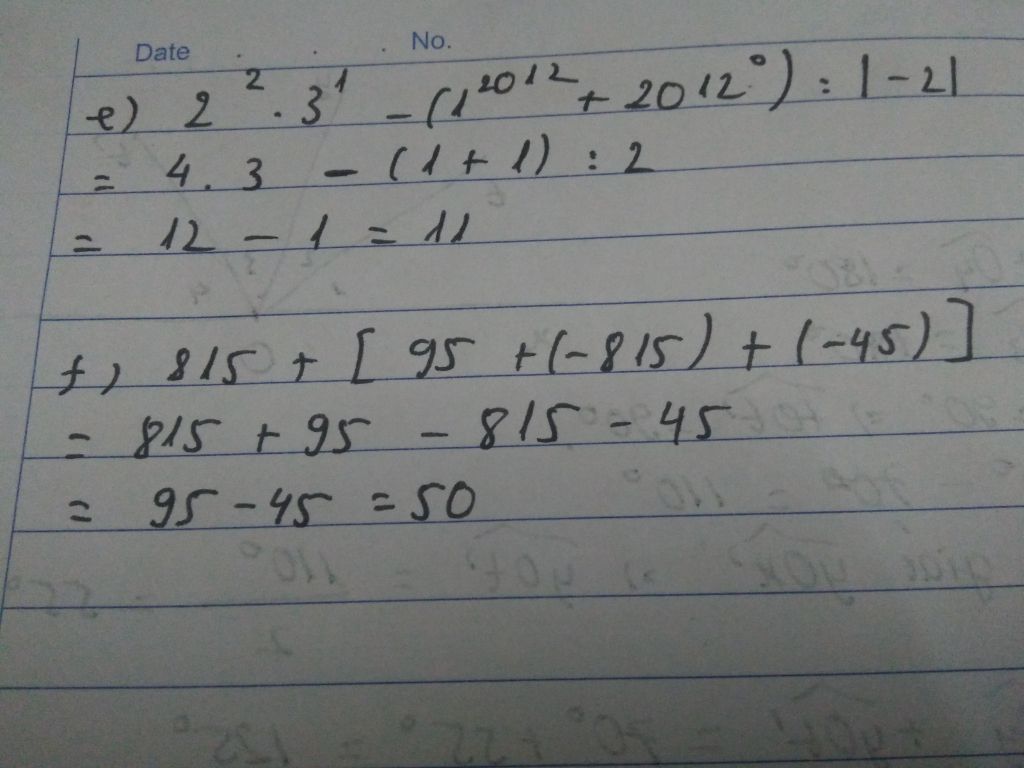 Date . . . No.
e) 2² . 3¹ - (1²⁰¹² + 2012⁰) : |-2|
= 4 . 3 - (1 + 1) : 2
= 12 - 1 = 11
f) 815 + [ 95 + (-815) + (-45) ]
= 815 + 95 - 815 - 45
= 95 - 45 = 50